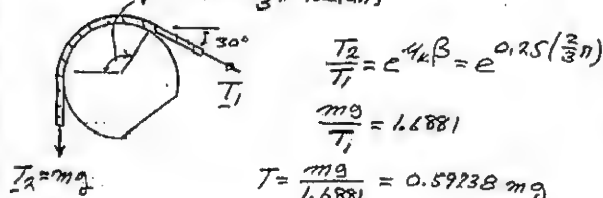 30°
T₁
T₂ = mg
T₂/T₁ = e^{μₖβ} = e^{0.25(2/3 π)}
mg/T₁ = 1.6881
T = mg/1.6881 = 0.59238 mg